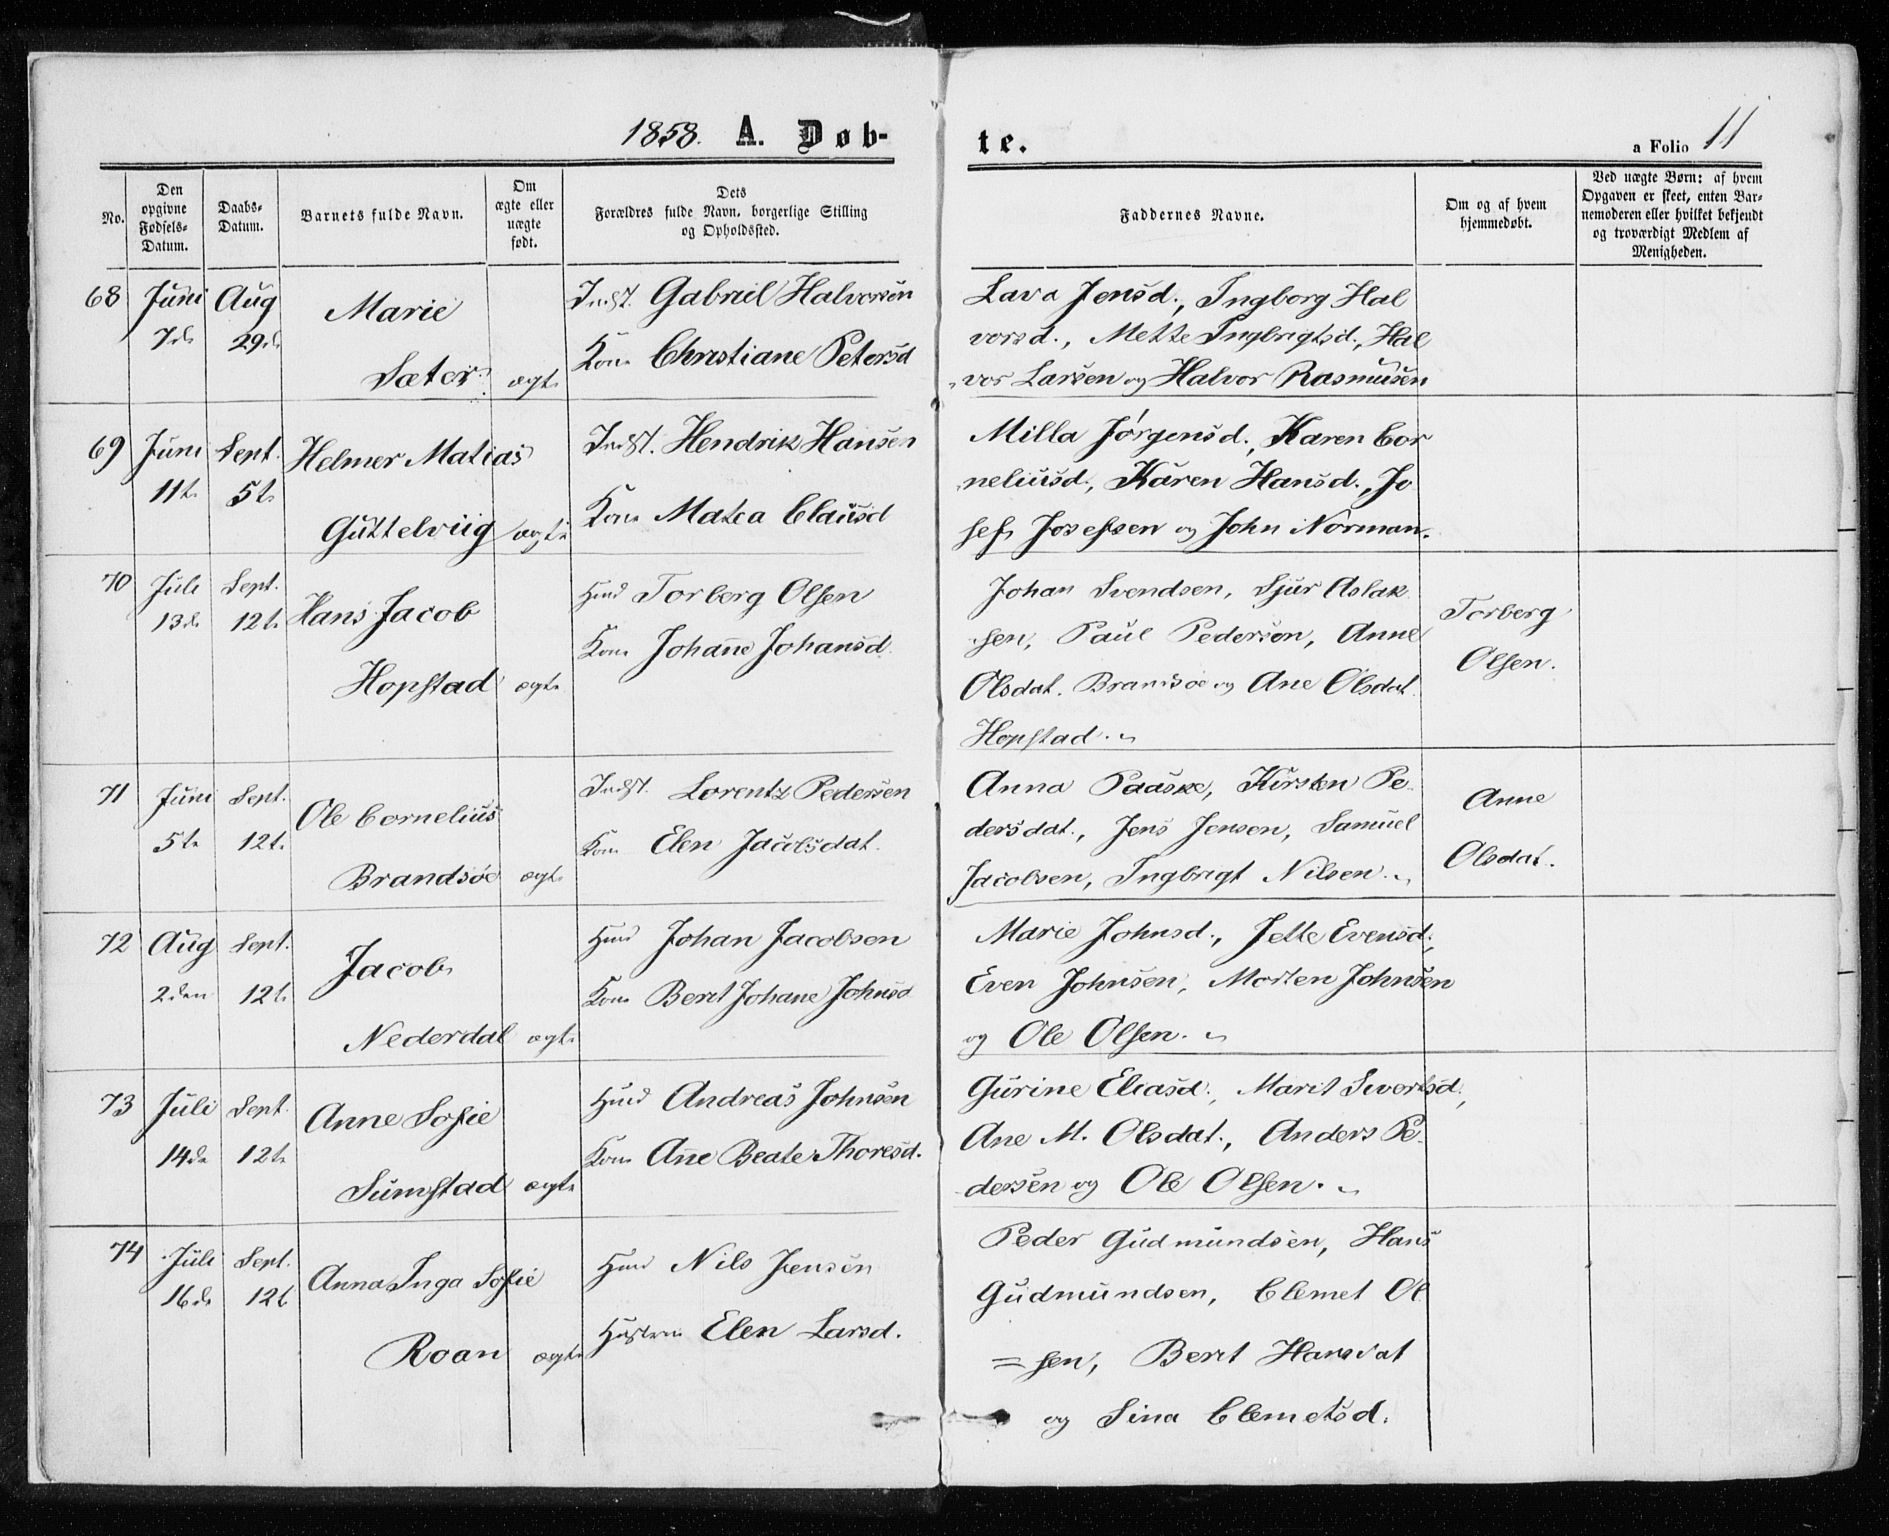 1858. A. Døb-
te.
a Folio 11
No.
Den
opgivne
Fødsels-
Datum.
Daabs-
Datum.
Barnets fulde Navn.
Om
ægte eller
uægte
født.
Dets
Forældres fulde Navn, borgerlige Stilling
og Opholdssted.
Faddernes Navne.
Om og af hvem
hjemmedøbt.
Ved uægte Børn: af hvem
Opgaven er skeet, enten Bar-
nemoderen eller hvilket bekjendt
og troværdigt Medlem af
Menigheden.
68 Juni Aug
7de 29de
Marie
Sæter. ægte
Indst. Gabriel Halvorsen
Kone Christiane Petersd
Lava Jensd., Ingborg Hal
vorsd., Mette Ingbrigtsd., Hal
vor Larsen og Halvor Rasmusen
69 Juni Sept.
11te 5te
Helmer Matias
Guttelviig ægte
Indst. Hendrik Hansen
Kone Matea Clausd
Milla Jørgensd., Karen Cor
neliusd., Karen Hansd., Jo
sef Josefsen og John Norman.
70 Juli Sept.
13de 12te
Hans Jacob
Hopstad ægte
Hmd Torberg Olsen
Kone Johan̄e Johansd.
Johan Svendsen, Sjur Aslak
sen, Paul Pedersen, Anne
Olsdat. Brandsøe og Ane Olsdat.
Hopstad.
Torberg
Olsen.
71 Juni Sept.
5te 12te
Ole Cornelius
Brandsøe ægte
Indst. Lorentz Pedersen
Kone Elen Jacobsdat.
Anna Paaske, Kirsten Pe
dersdat., Jens Jensen, Samuel
Jacobsen, Ingbrigt Nilsen.
Anne
Olsdat.
72 Aug Sept.
2den 12te
Jacob
Nederdal ægte
Hmd Johan Jacobsen
Kone Beret Johane Johnsd
Marie Johnsd., Jette Evensd.,
Even Johnsen, Morten Johnsen
og Ole Olsen.
73 Juli Sept.
14de 12te
Anne Sofie
Sumstad ægte
Hmd Andreas Johnsen
Kone An̄e Beate Thoresd.
Gurine Eliasd., Marit Sivertsd.,
Ane M. Olsdat., Anders Pe-
dersen og Ole Olsen.
74 Juli Sept.
16de 12te
Anna Inga Sofie
Roan ægte
Hmd Nils Jensen
Hustrue Elen Larsd.
Peder Gudmundsen, Hans
Gudmundsen, Clemet Ol
=sen, Beret Hansdat
og Sina Clemetsd.